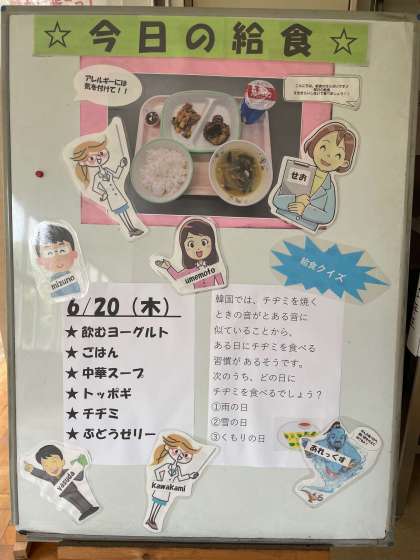 ☆今日の給食☆
アレルギーには
気を付けて！！
せお
mizuno
umemoto
給食クイズ
6/20（木）
★飲むヨーグルト
★ごはん
★中華スープ
★トッポギ
★チヂミ
★ぶどうゼリー
韓国では、チヂミを焼く
ときの音がとある音に
似ていることから、
ある日にチヂミを食べる
習慣が あるそうです。
次のうち、どの日に
チヂミを食べるでしょう？
①雨の日
②雪の日
③くもりの日
yasuda
kawakami
あれっくす